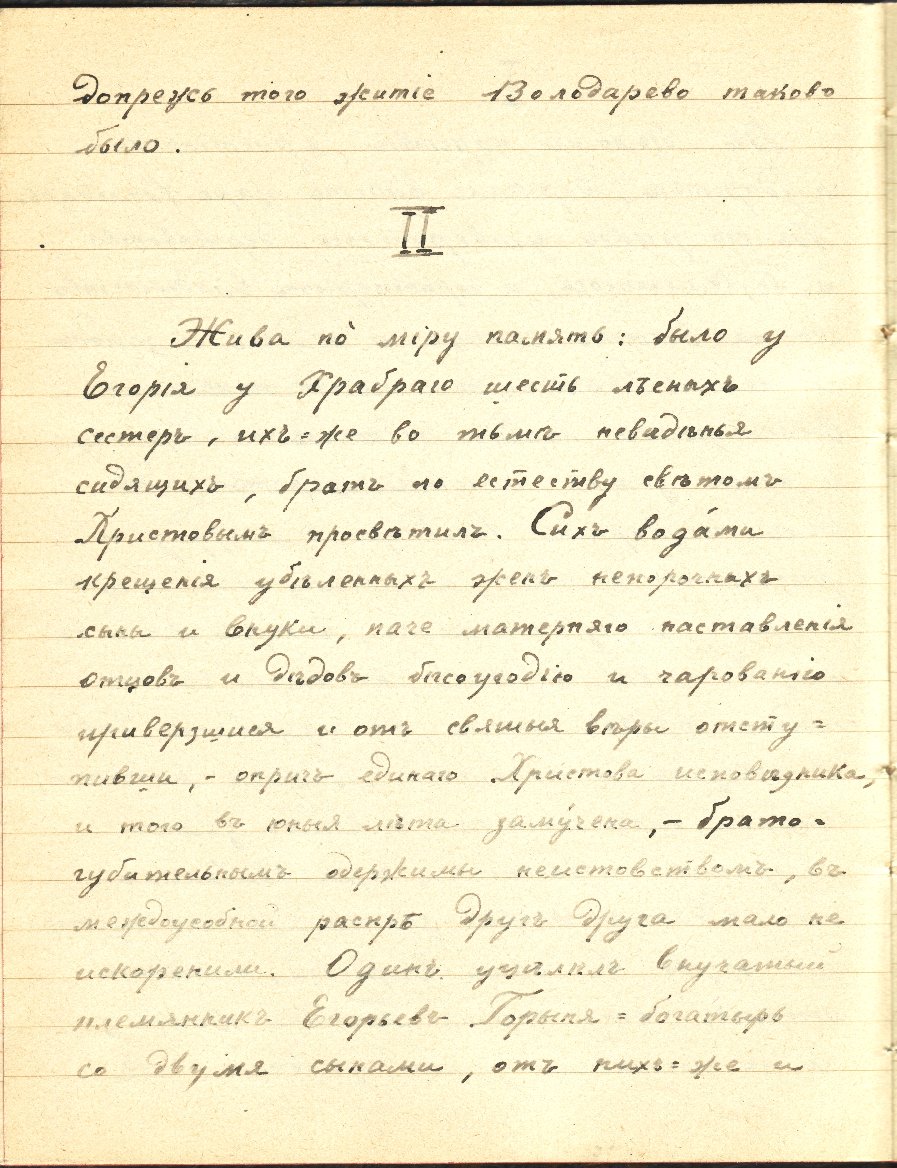 допрежь того житіе Володарево таково
было.
II
Жива по̀ міру память: было у
Егорія у Храбраго шесть лѣсныхъ
сестеръ, ихъ=же во тьмѣ невидѣнья
сидящихъ, братъ по естеству свѣтомъ
Христовымъ просвѣтилъ. Сихъ вода́ми
крещенія убѣленныхъ женъ непорочныхъ
сыны и внуки, паче матерняго наставленія
отцовъ и дѣдовъ бѣсоугодію и чарованію
приверзшися и отъ святыя вѣры отсту=
пивши, – опричь единаго Христова исповѣдника,
и того въ юныя лѣта заму́чена, – брато=
губительнымъ одержимы неистовствомъ, въ
междоусобной распрѣ другъ друга мало не
искоренили. Одинъ уцѣлѣлъ внучатый
племянникъ Егорьевъ Горыня=богатырь
со двумя сынами, отъ нихъ=же и